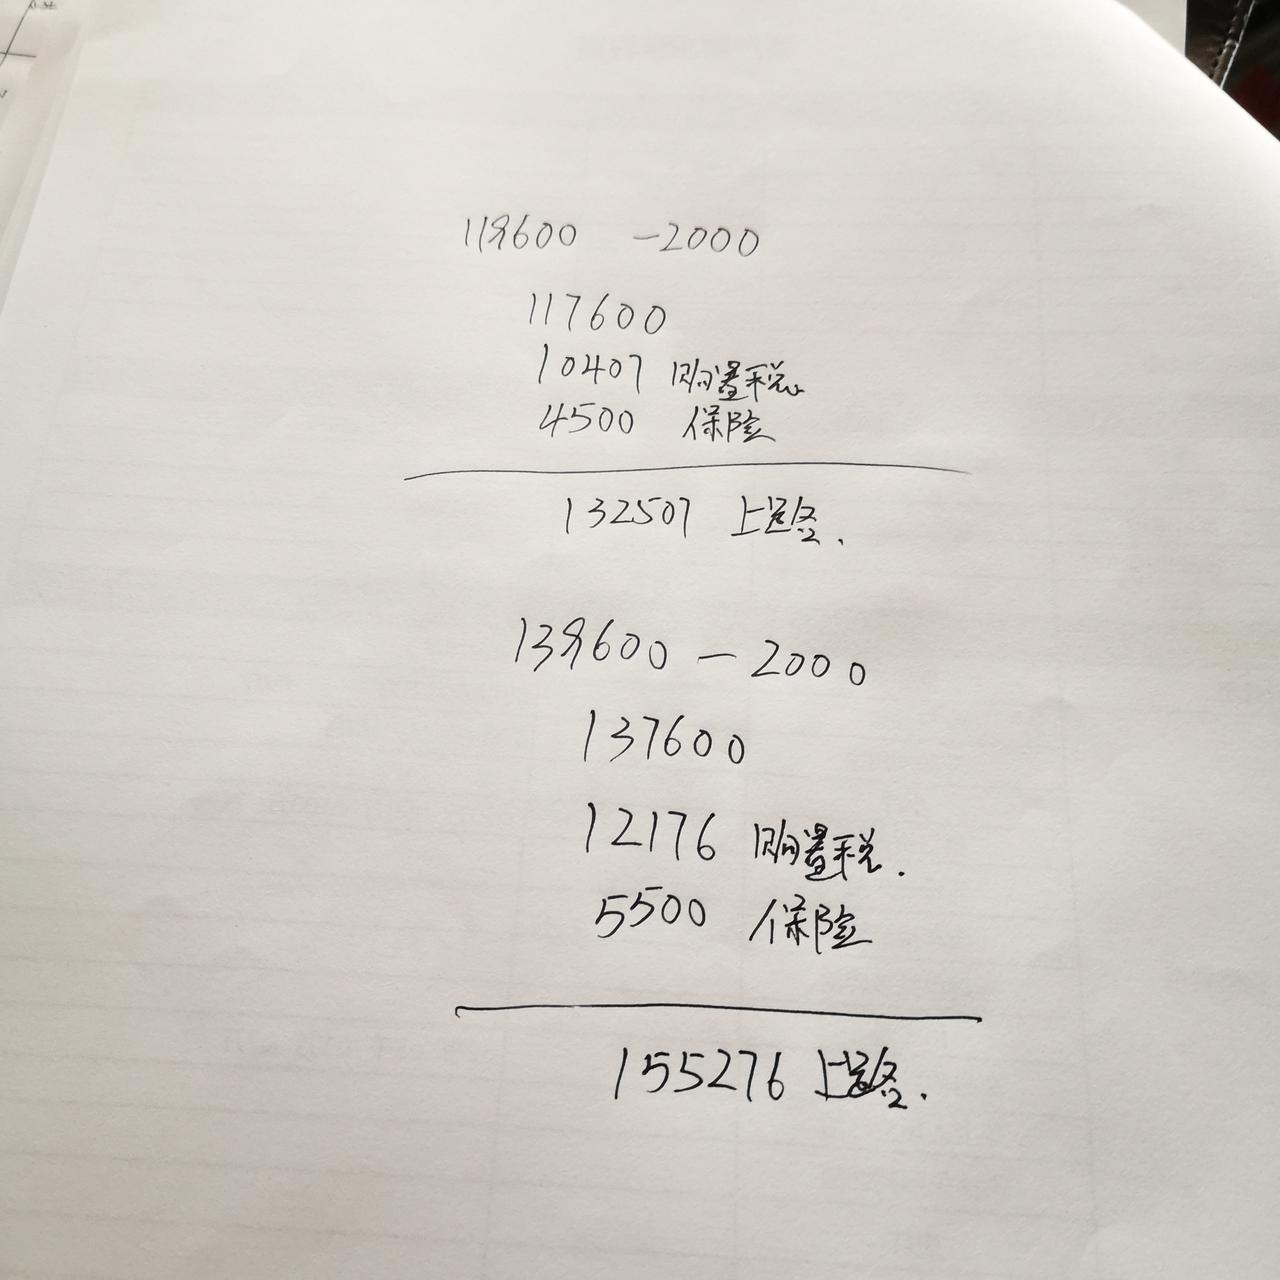 119600 -2000
117600
10407 购置税
4500 保险
132507 上路.
139600-2000
137600
12176 购置税.
5500 保险
155276 上路.